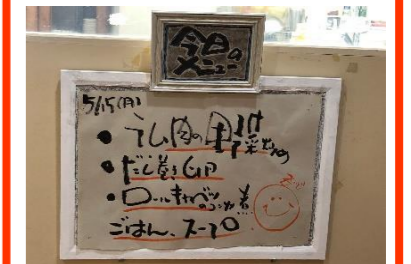 今日の
メニュー
5/15(月)
・ラム肉の野菜炒め
・だし巻き
・ロールキャベツの
ごはん、スープ